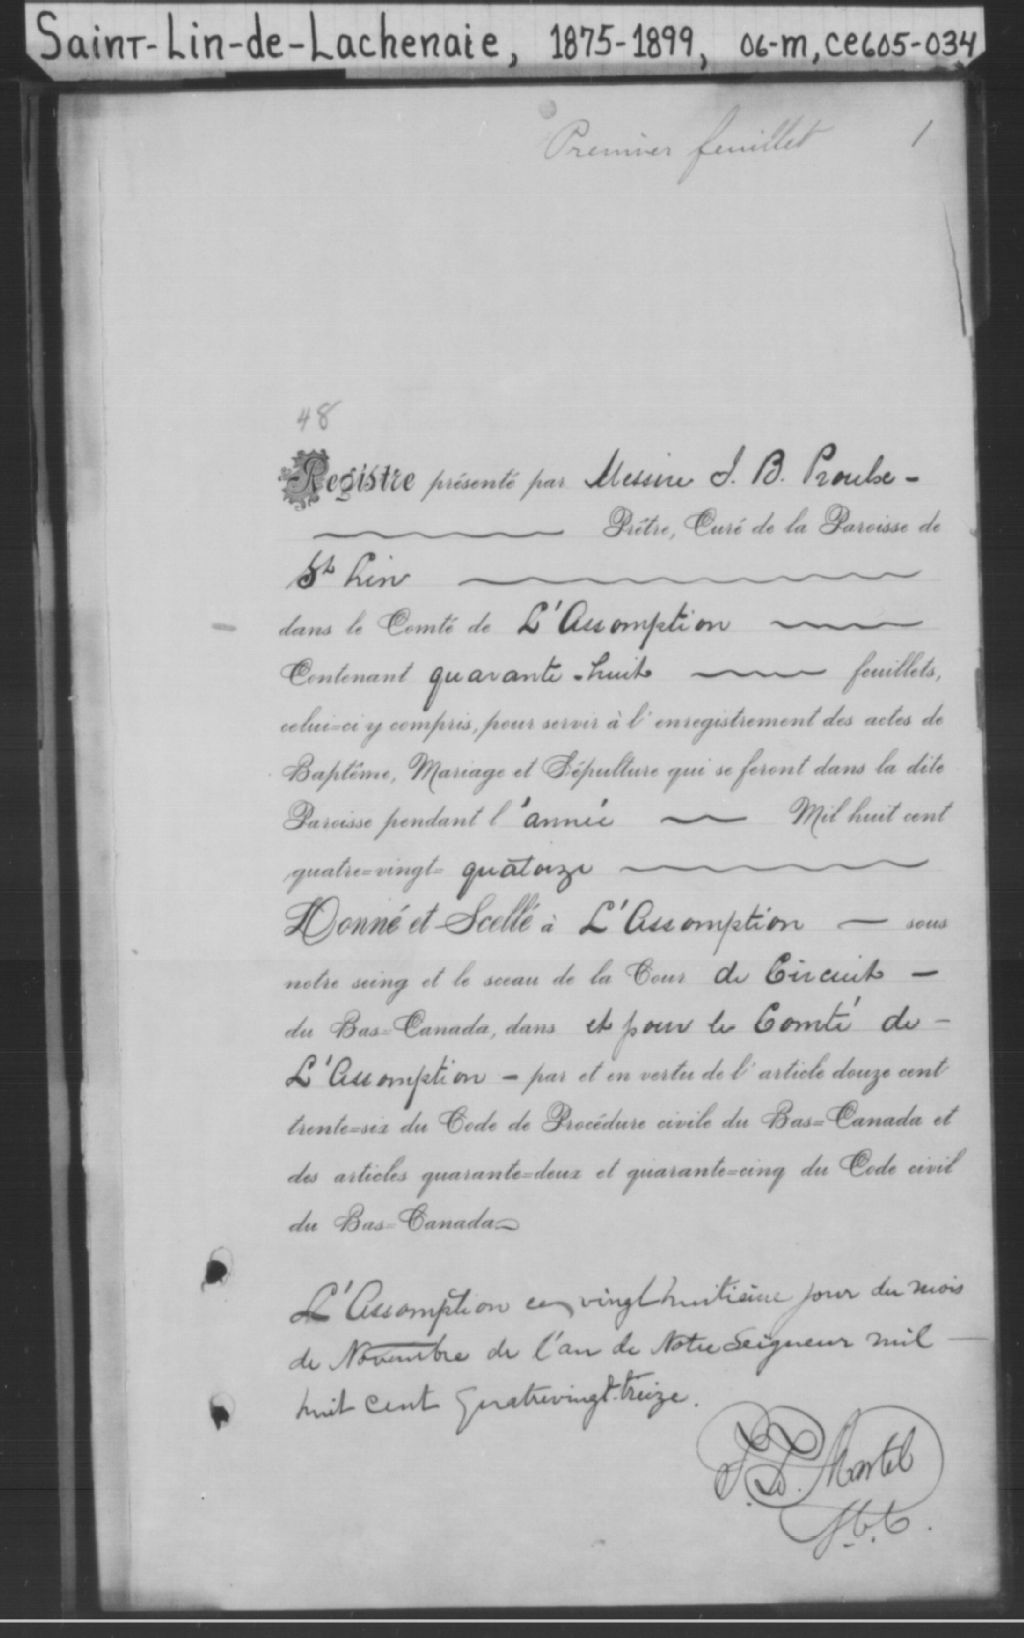 Saint-Lin-de-Lachenaie, 1875-1899, 06-m, CE605-034
Premier feuillet 1
48
Registre présenté par Messire J. B. Proulx -
Prêtre, Curé de la Paroisse de
St Lin
dans le Comté de L'Assomption
Contenant quarante-huit feuillets,
celui=ci y compris, pour servir à l'enregistrement des actes de
Baptême, Mariage et Sépulture qui se feront dans la dite
Paroisse pendant l'année Mil huit cent
quatre=vingt= quatorze
Donné et Scellé à L'Assomption — sous
notre seing et le sceau de la Cour de Circuit —
du Bas=Canada, dans et pour le Comté de -
L'Assomption - par et en vertu de l'article douze cent
trente=six du Code de Procédure civile du Bas=Canada et
des articles quarante=deux et quarante=cinq du Code civil
du Bas=Canada
L'Assomption ce vingt huitième jour du mois
de Novembre de l'an de Notre Seigneur mil —
huit cent quatrevingt-treize.
Martel